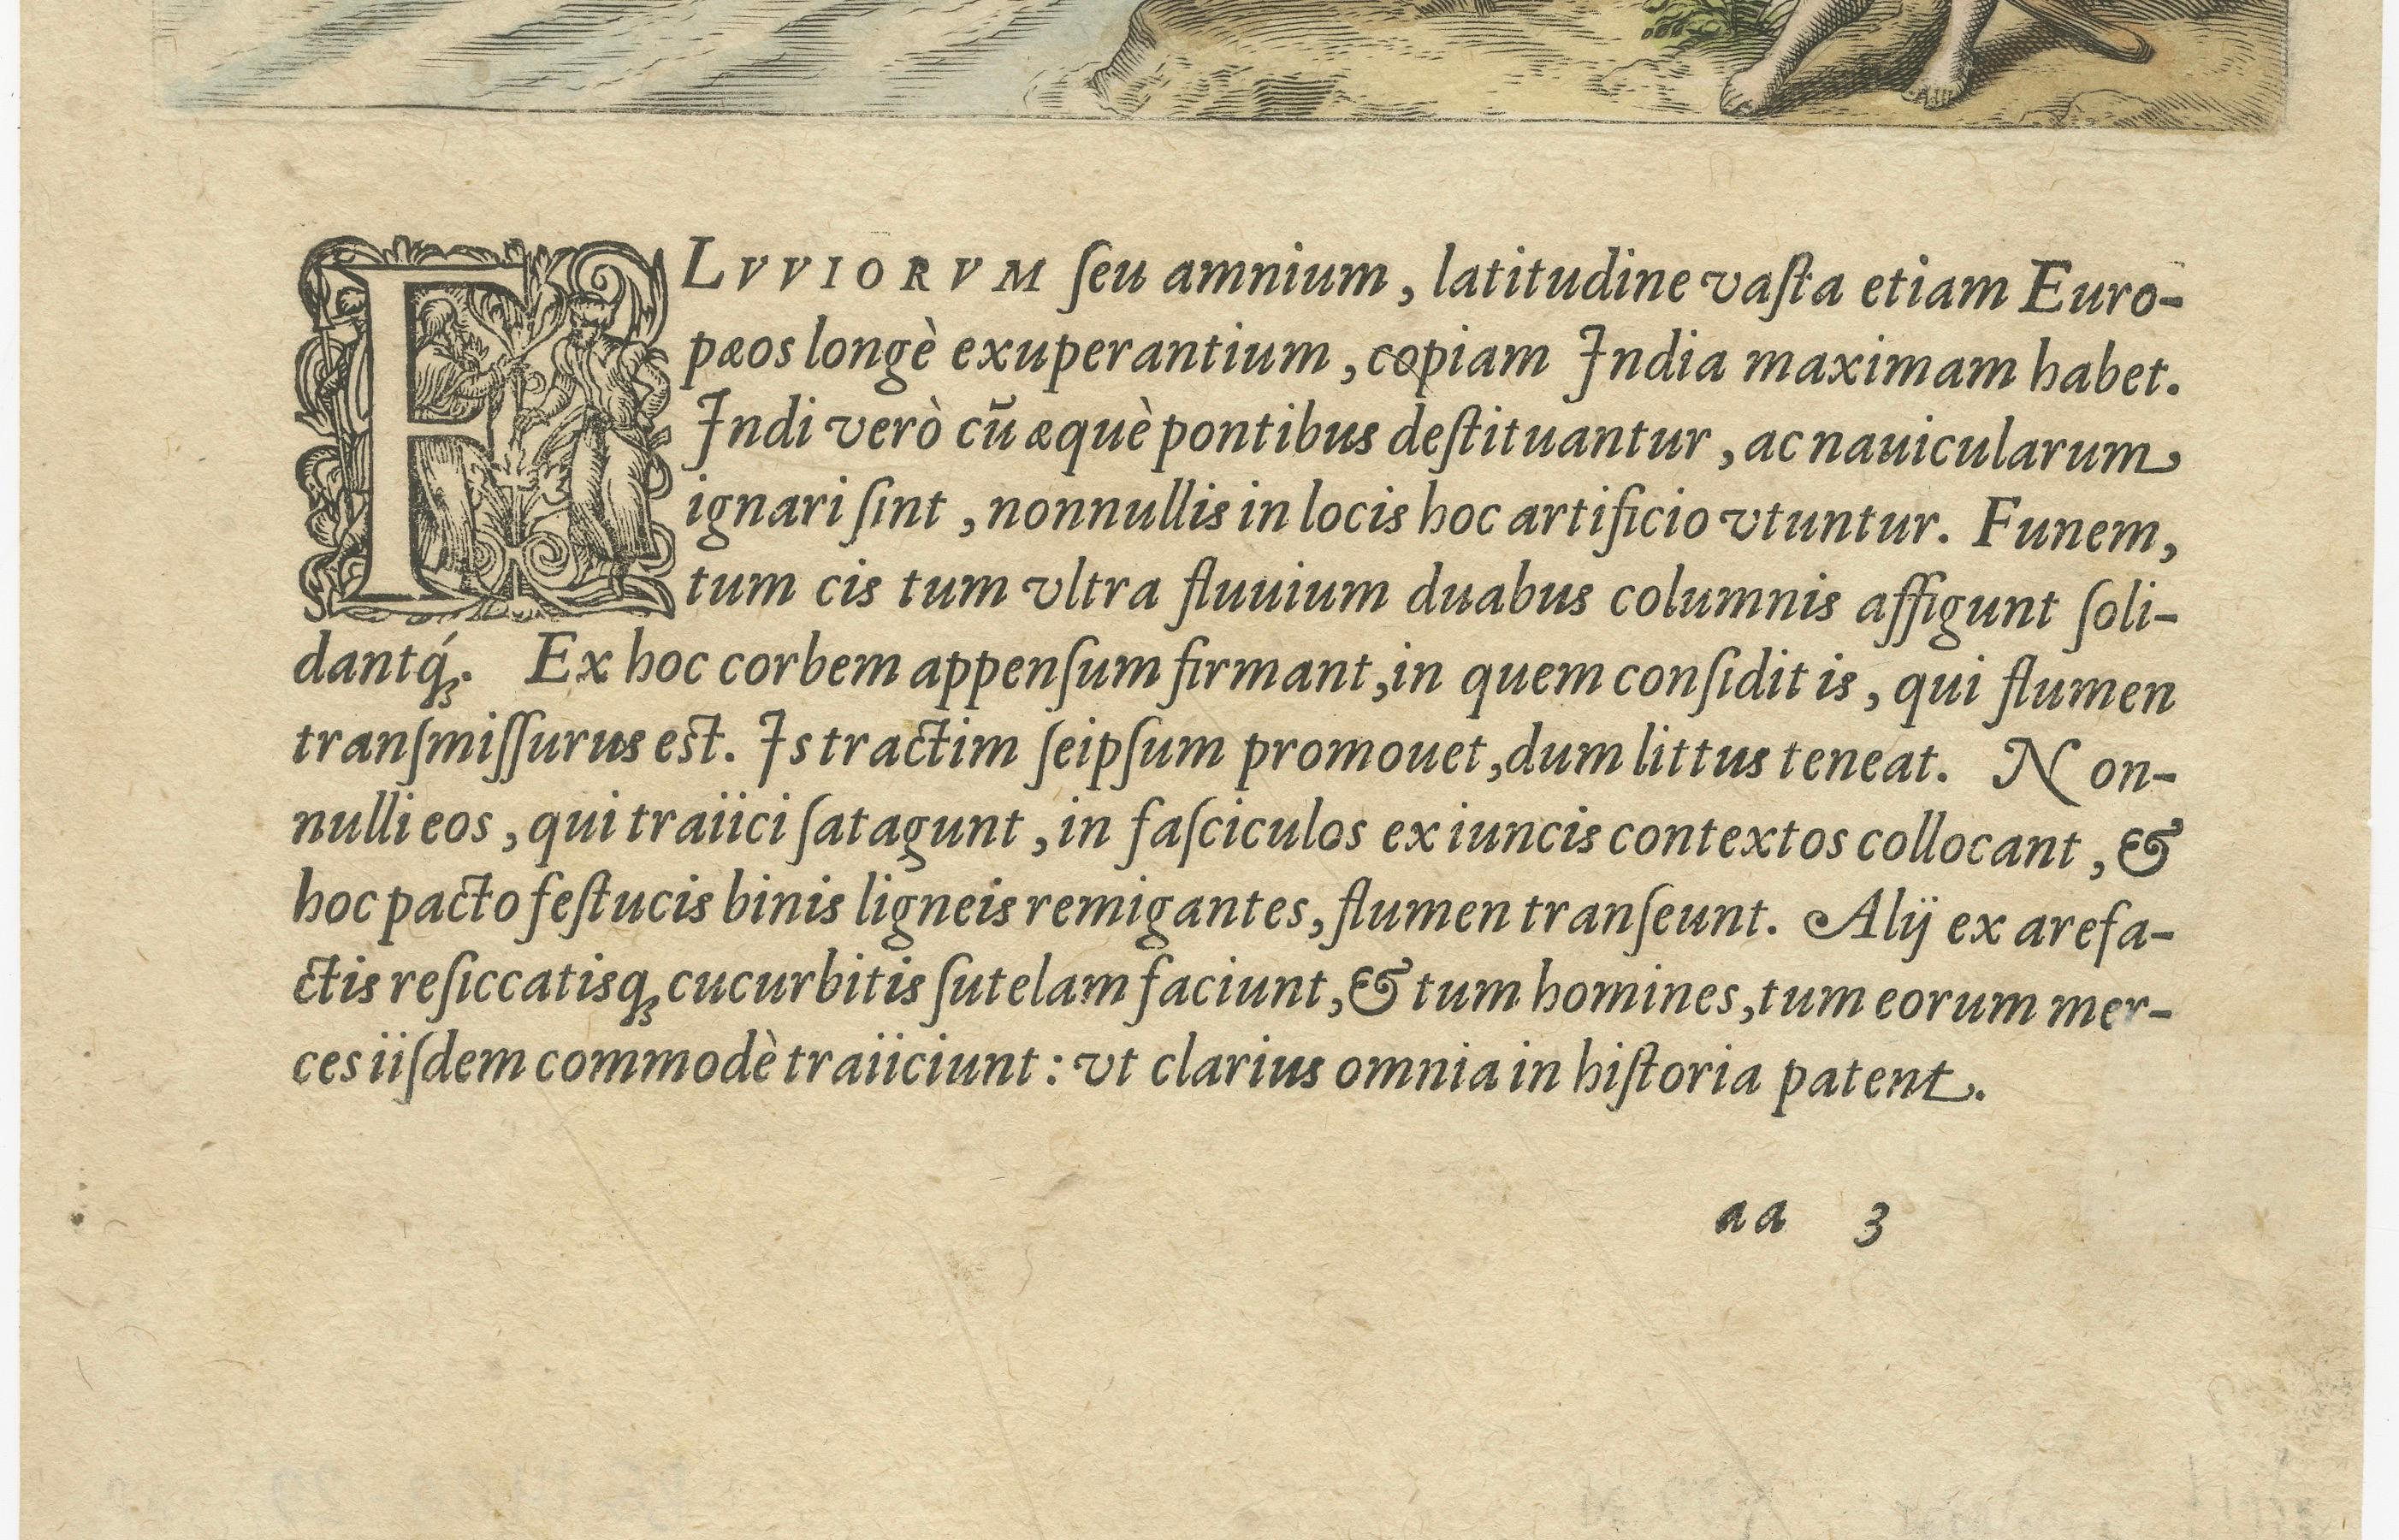 FLVVIORVM ſeu amnium, latitudine vaſta etiam Euro-
pæos longè exuperantium, copiam India maximam habet.
Indi verò cū æquè pontibus deſtituantur, ac nauicularum
ignari ſint, nonnullis in locis hoc artificio vtuntur. Funem,
tum cis tum vltra fluuium duabus columnis affigunt ſoli-
dantq́ꝫ. Ex hoc corbem appenſum firmant, in quem conſidit is, qui flumen
tranſmiſſurus est. Is tractim ſeipſum promouet, dum littus teneat. Non-
nulli eos, qui traiici ſatagunt, in faſciculos ex iuncis contextos collocant, &
hoc pacto feſtucis binis ligneis remigantes, flumen tranſeunt. Alij ex arefa-
ctis reſiccatisqꝫ cucurbitis ſutelam faciunt, & tum homines, tum eorum mer-
ces iiſdem commodè traiiciunt: vt clarius omnia in hiſtoria patent.
aa 3